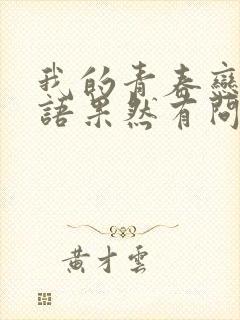 我的青春戀
語果然有問
黃才雲